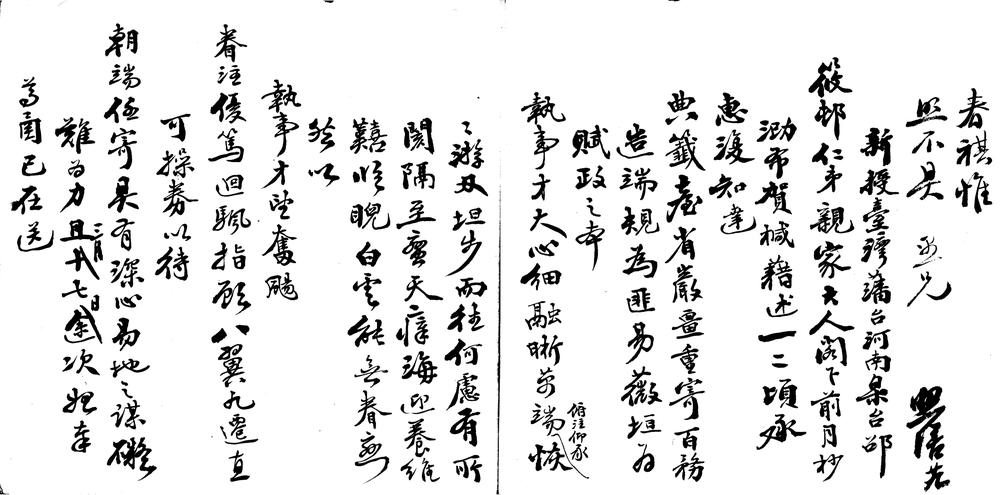 春祺惟
照不具
新授臺灣藩台河南臬台邵
筱邨仁弟親家大人閣下前月抄
泐布賀椷藉述一二頃承
惠復知達
典籤臺省嚴疆重寄百務
造端規為匪易薇垣為
賦政之本
執事才大心細融晰萬端
俯注仰承
之游及坦步而往何慮有所
閡隔至䆮天瘴海迎養維
囏睨白雲能無眷念
所以
執事才望奮颺
眷注優篤迴颿指顧八翼九遷直
可操券以待
朝端任寄具有深心易地之謀礙
難為力且
二月
七日
次
奉
尊甫已在送